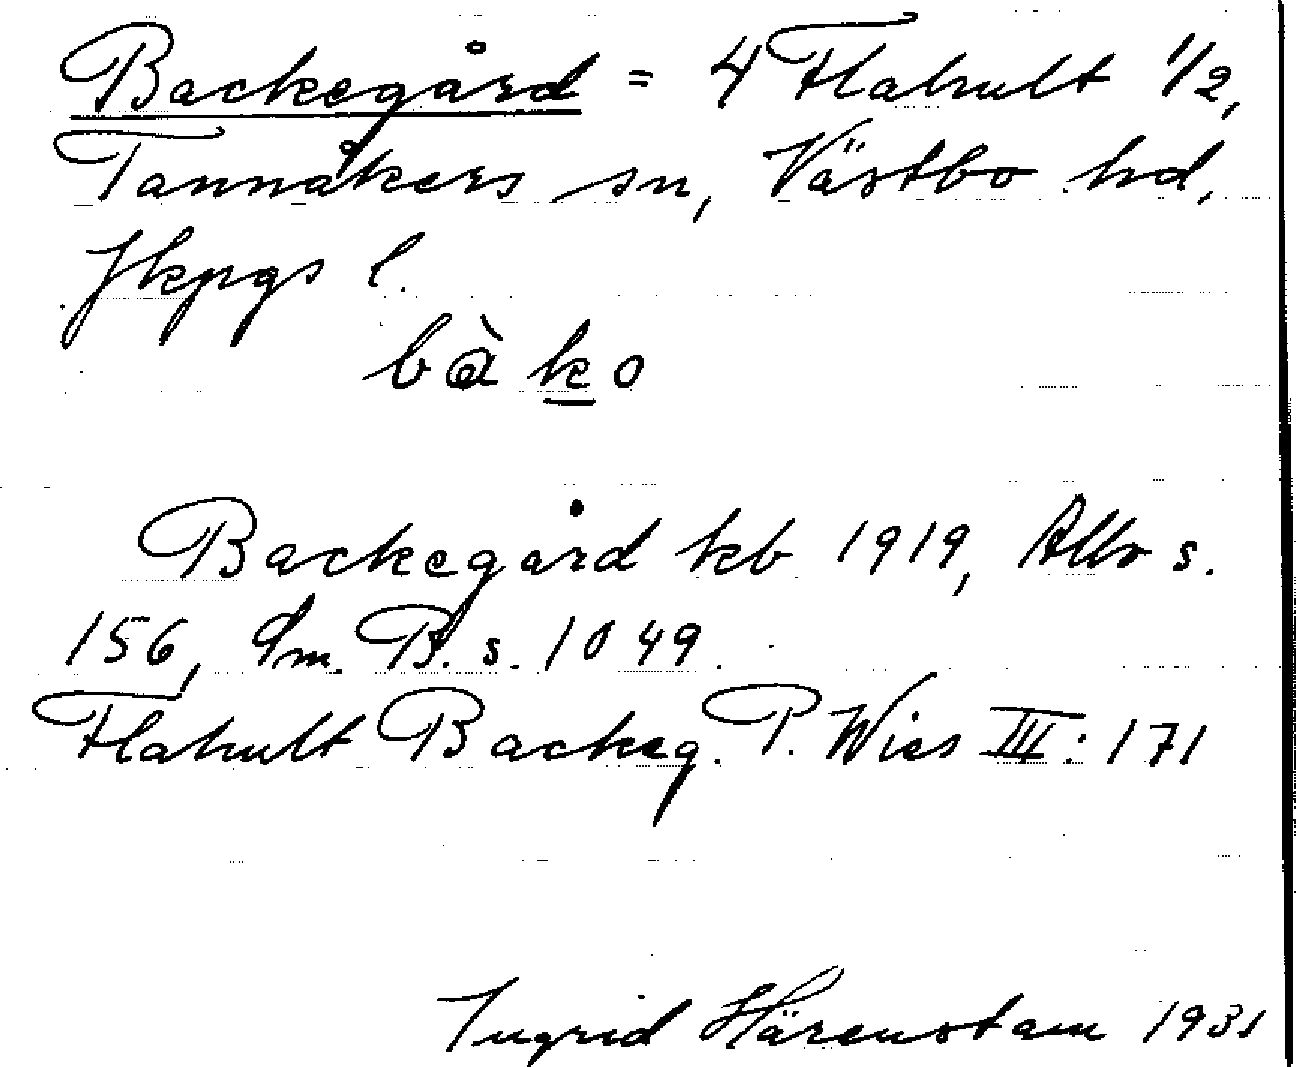 Backegård = 4 Flahult 1/2,
Tannåkers sn, Västbo hd,
Jkpgs l.
bàko
Backegård kb 1919, Allbo s.
156, Jm. B. s. 1049.
Flahult Backeg. P. Wies III: 171
Ingrid Härenstam 1931